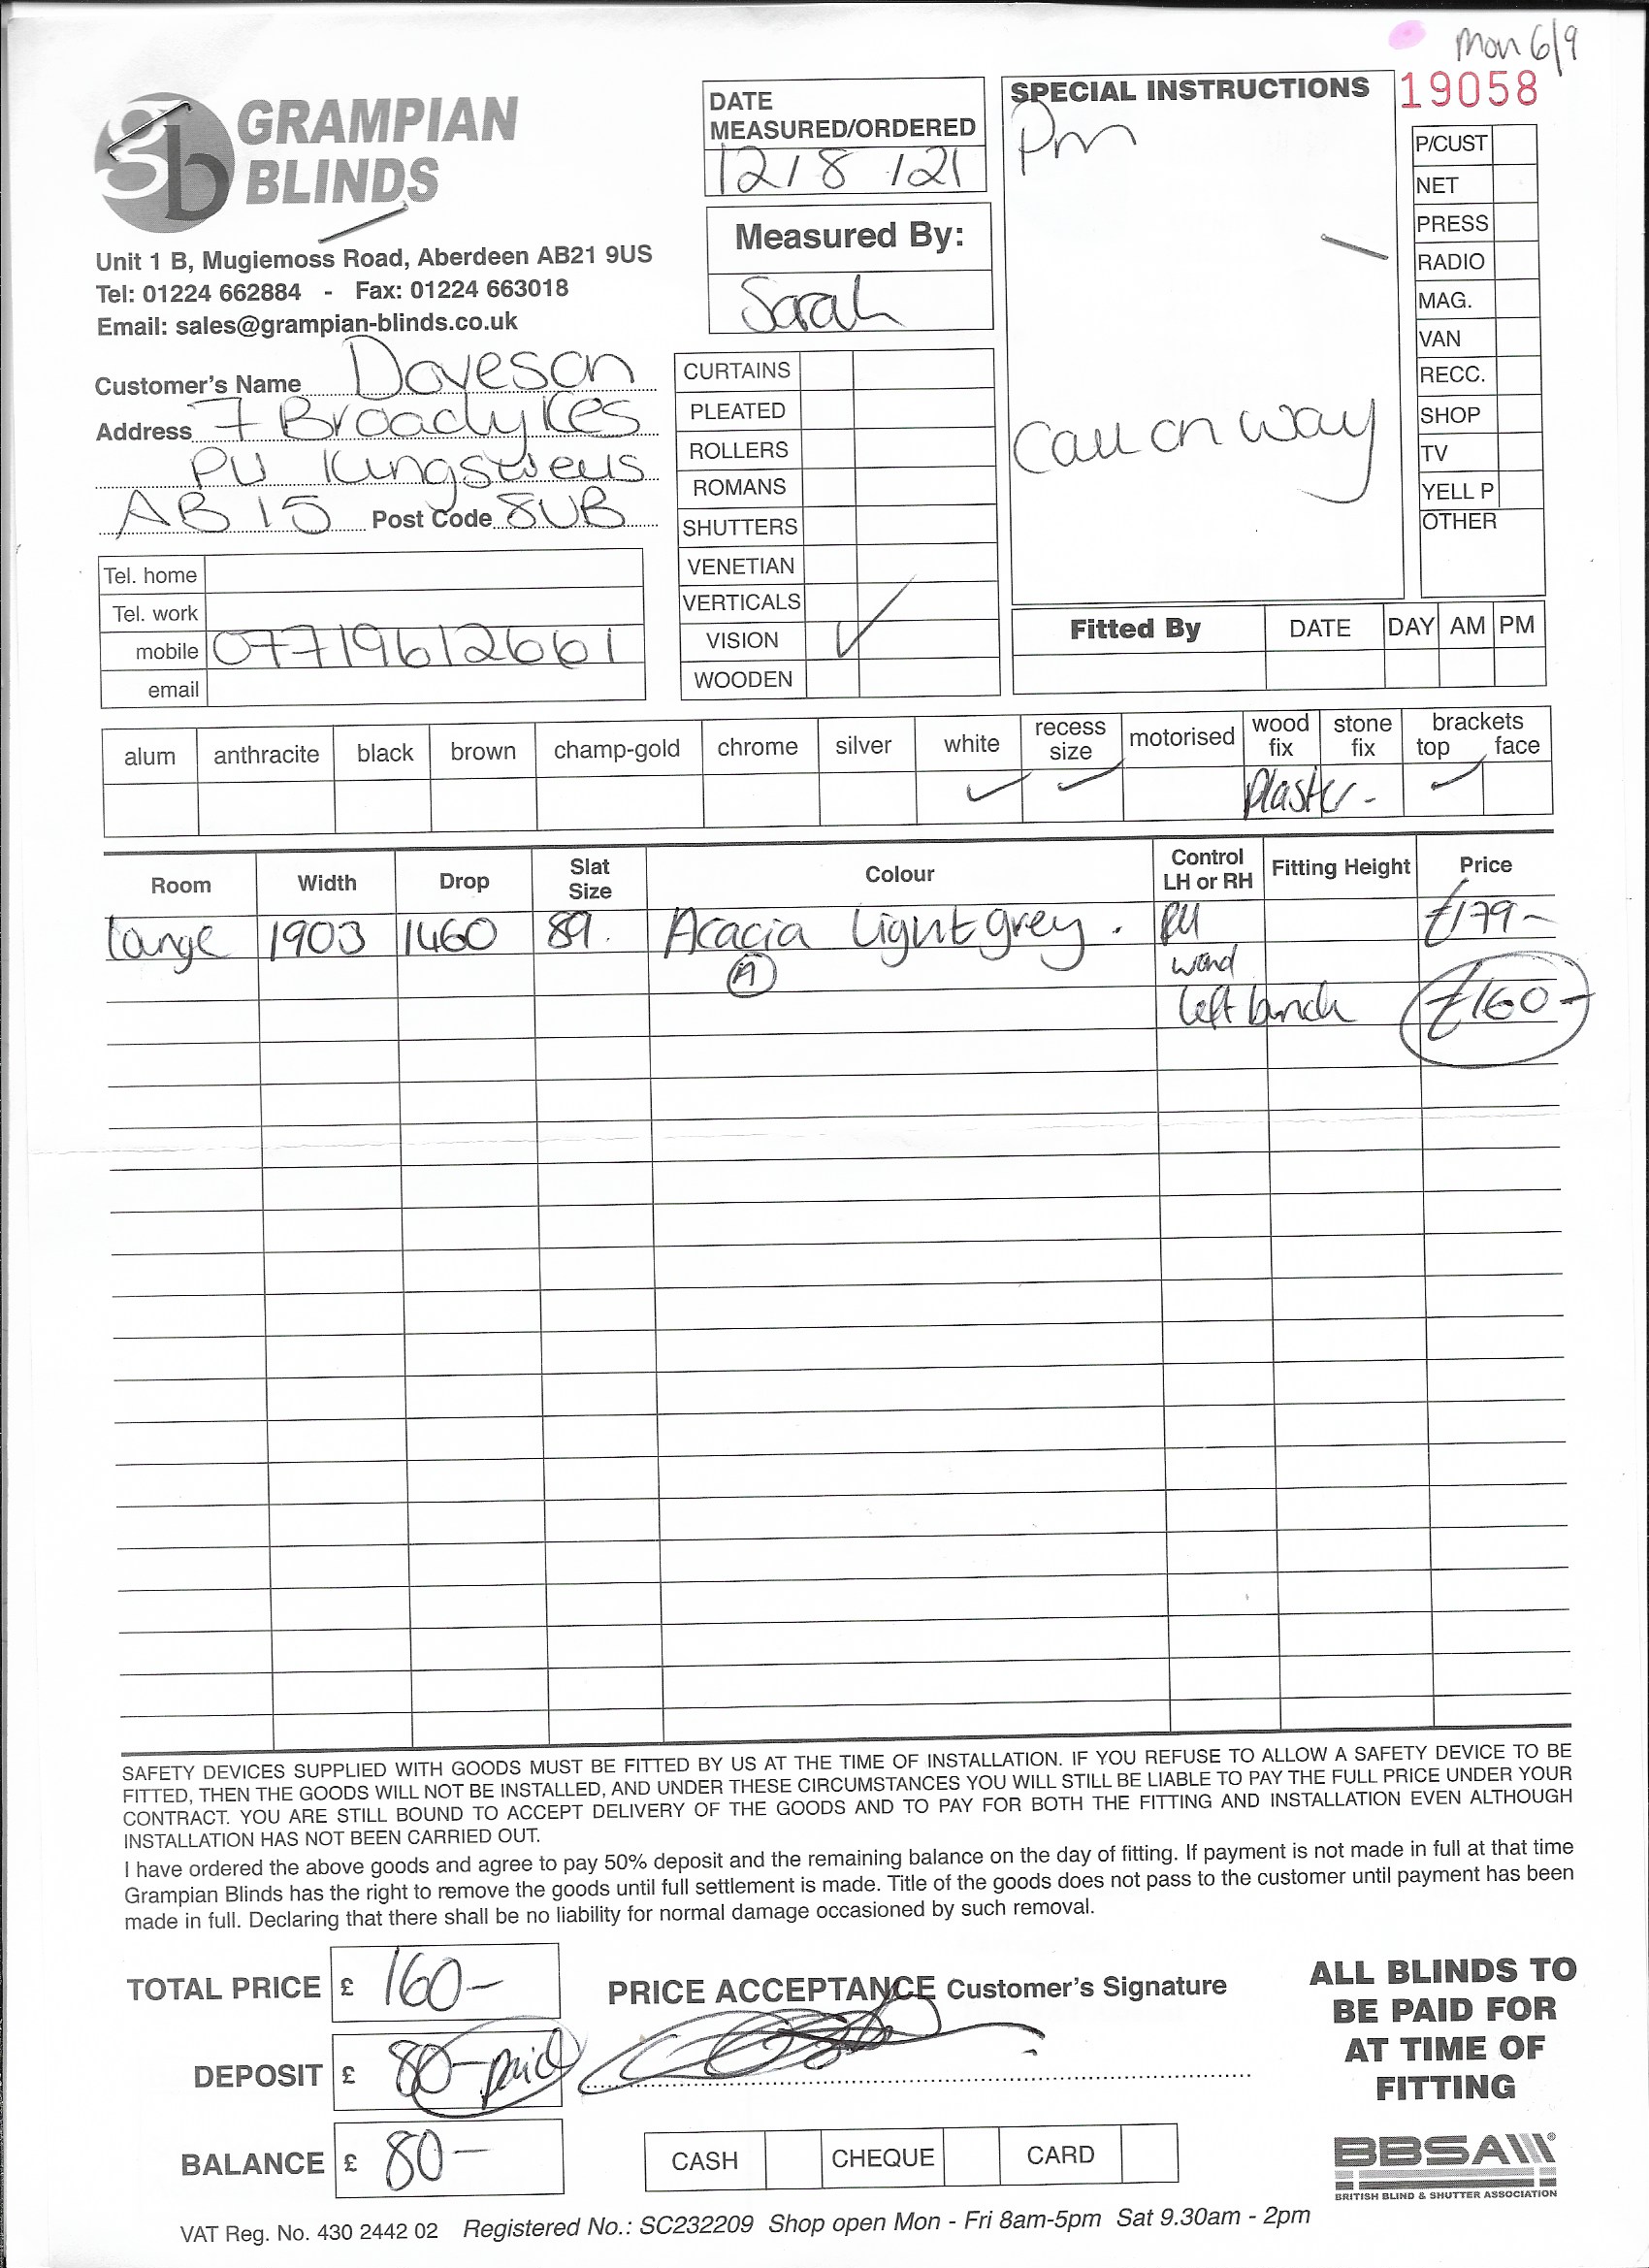 Mon 6/9
19058
GRAMPIAN
BLINDS
Unit 1 B, Mugiemoss Road, Aberdeen AB21 9US
Tel: 01224 662884 - Fax: 01224 663018
Email: sales@grampian-blinds.co.uk
Customer's Name Daveson
Address 7 Broadykes
PU Kingswells
AB15 Post Code 8UB
Tel. home
Tel. work
mobile 07719612661
email
DATE
MEASURED/ORDERED
12/8/21
Measured By:
Sarah
CURTAINS
PLEATED
ROLLERS
ROMANS
SHUTTERS
VENETIAN
VERTICALS
VISION ✓
WOODEN
SPECIAL INSTRUCTIONS
Pm
Call on way
P/CUST
NET
PRESS
RADIO
MAG.
VAN
RECC.
SHOP
TV
YELL P
OTHER
Fitted By DATE DAY AM PM
alum anthracite black brown champ-gold chrome silver white recess size motorised wood fix stone fix brackets top face
✓ ✓ plaster - ✓
Room Width Drop Slat Size Colour Control LH or RH Fitting Height Price
lange 1903 1460 89. Acacia Light grey. RH £179-
A wand
left bunch £160-
SAFETY DEVICES SUPPLIED WITH GOODS MUST BE FITTED BY US AT THE TIME OF INSTALLATION. IF YOU REFUSE TO ALLOW A SAFETY DEVICE TO BE
FITTED, THEN THE GOODS WILL NOT BE INSTALLED, AND UNDER THESE CIRCUMSTANCES YOU WILL STILL BE LIABLE TO PAY THE FULL PRICE UNDER YOUR
CONTRACT. YOU ARE STILL BOUND TO ACCEPT DELIVERY OF THE GOODS AND TO PAY FOR BOTH THE FITTING AND INSTALLATION EVEN ALTHOUGH
INSTALLATION HAS NOT BEEN CARRIED OUT.
I have ordered the above goods and agree to pay 50% deposit and the remaining balance on the day of fitting. If payment is not made in full at that time
Grampian Blinds has the right to remove the goods until full settlement is made. Title of the goods does not pass to the customer until payment has been
made in full. Declaring that there shall be no liability for normal damage occasioned by such removal.
TOTAL PRICE £ 160-
DEPOSIT £ 80- paid
BALANCE £ 80-
PRICE ACCEPTANCE Customer's Signature
CASH CHEQUE CARD
ALL BLINDS TO
BE PAID FOR
AT TIME OF
FITTING
BBSA
BRITISH BLIND & SHUTTER ASSOCIATION
VAT Reg. No. 430 2442 02 Registered No.: SC232209 Shop open Mon - Fri 8am-5pm Sat 9.30am - 2pm